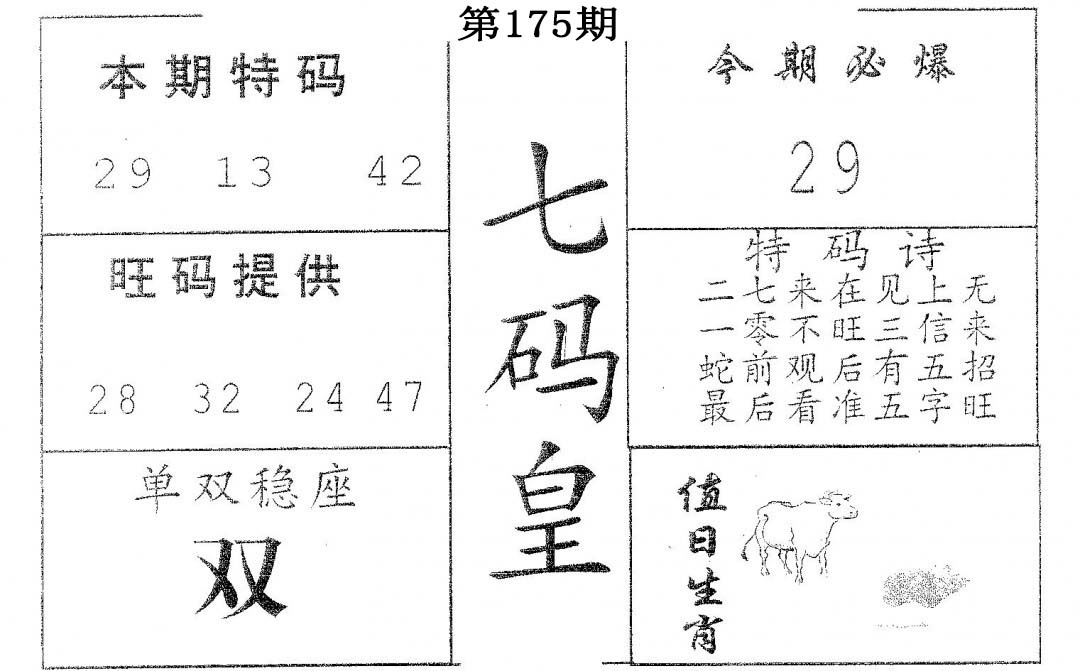 第175期
本期特码
29 13 42
旺码提供
28 32 24 47
单双稳座
双
七码皇
今期必爆
29
特码诗
二七来在见上无
一零不旺三信来
蛇前观后有五招
最后看准五字旺
值日生肖